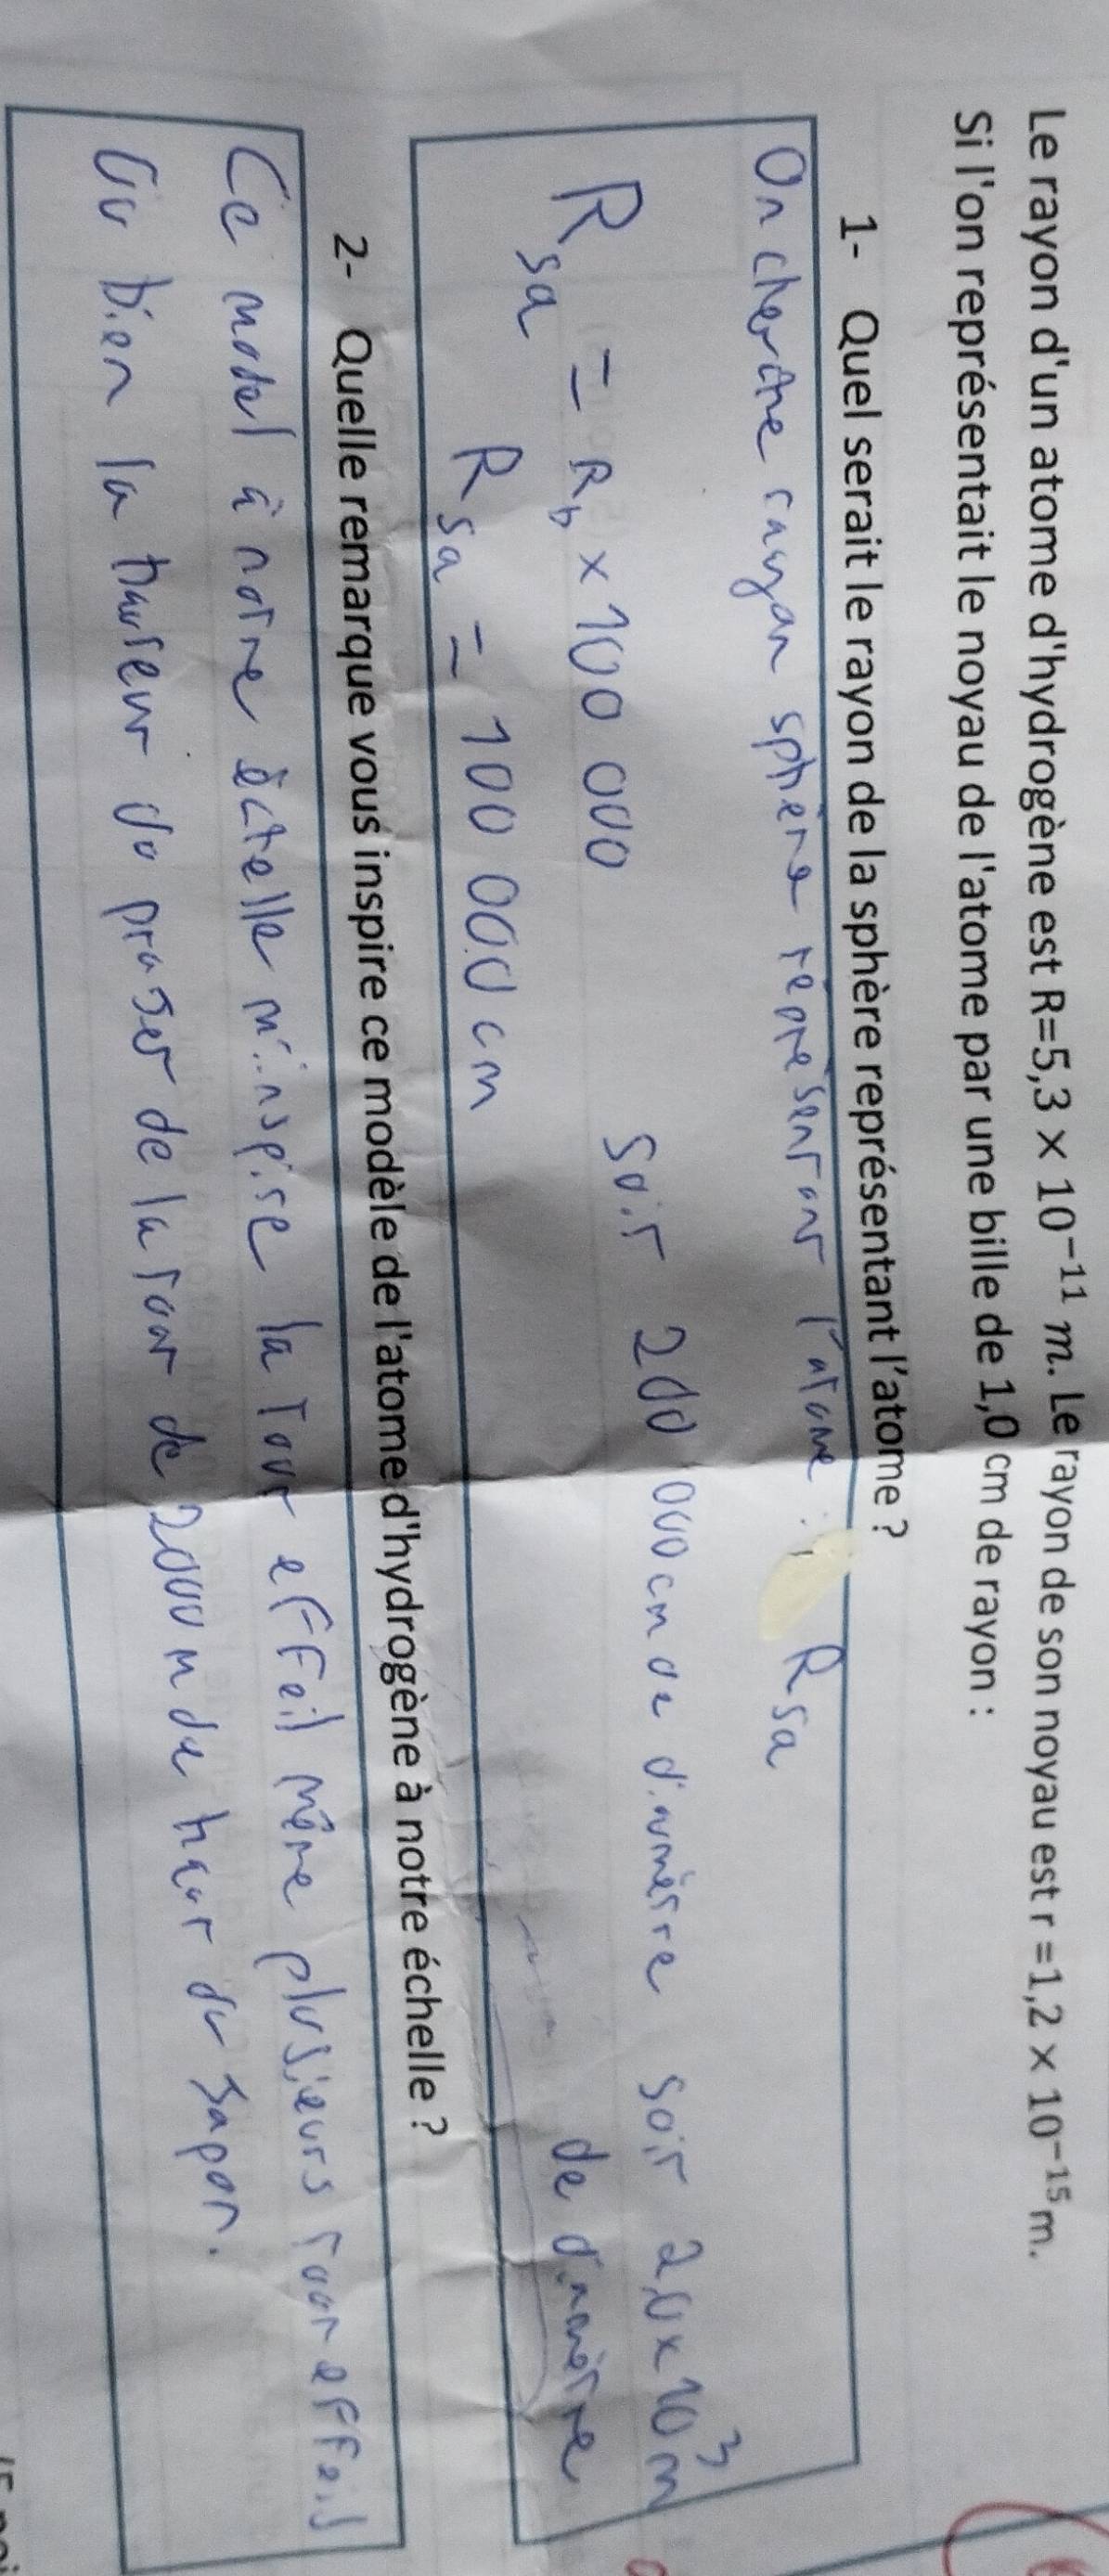 Le rayon d'un atome d'hydrogène est R=5,3 × 10⁻¹¹ m. Le rayon de son noyau est r =1,2 × 10⁻¹⁵ m.
Si l'on représentait le noyau de l'atome par une bille de 1,0 cm de rayon :
1- Quel serait le rayon de la sphère représentant l'atome ?
On cherche rayon sphère représentant l'atome : Rsa
Rsa = Rb × 100 000 soit 200 000 cm de diamètre soit 2,0×10³ m
de diamètre
Rsa = 100 000 cm
2- Quelle remarque vous inspire ce modèle de l'atome d'hydrogène à notre échelle ?
Ce model à notre échelle m'inspire la tour effeil même plusieurs tour effeil
Ou bien la hauteur du de la tour de 2000 m de haut du Japon.